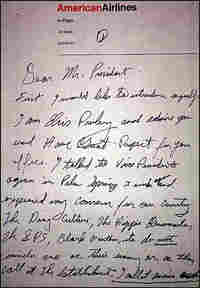 AmericanAirlines
In Flight
1
Dear Mr. President
First I would like to introduce myself
I am Elvis Presley and admire you
and Have Great Respect for your
office. I talked to Vice President
Agnew in Palm Springs 3 weeks and
expressed my concern for our country
The Drug Culture, The Hippie Elements,
The SDS, Black Panthers, etc do not
consider me as their enemy or as they
call it The Establishment. I call it America